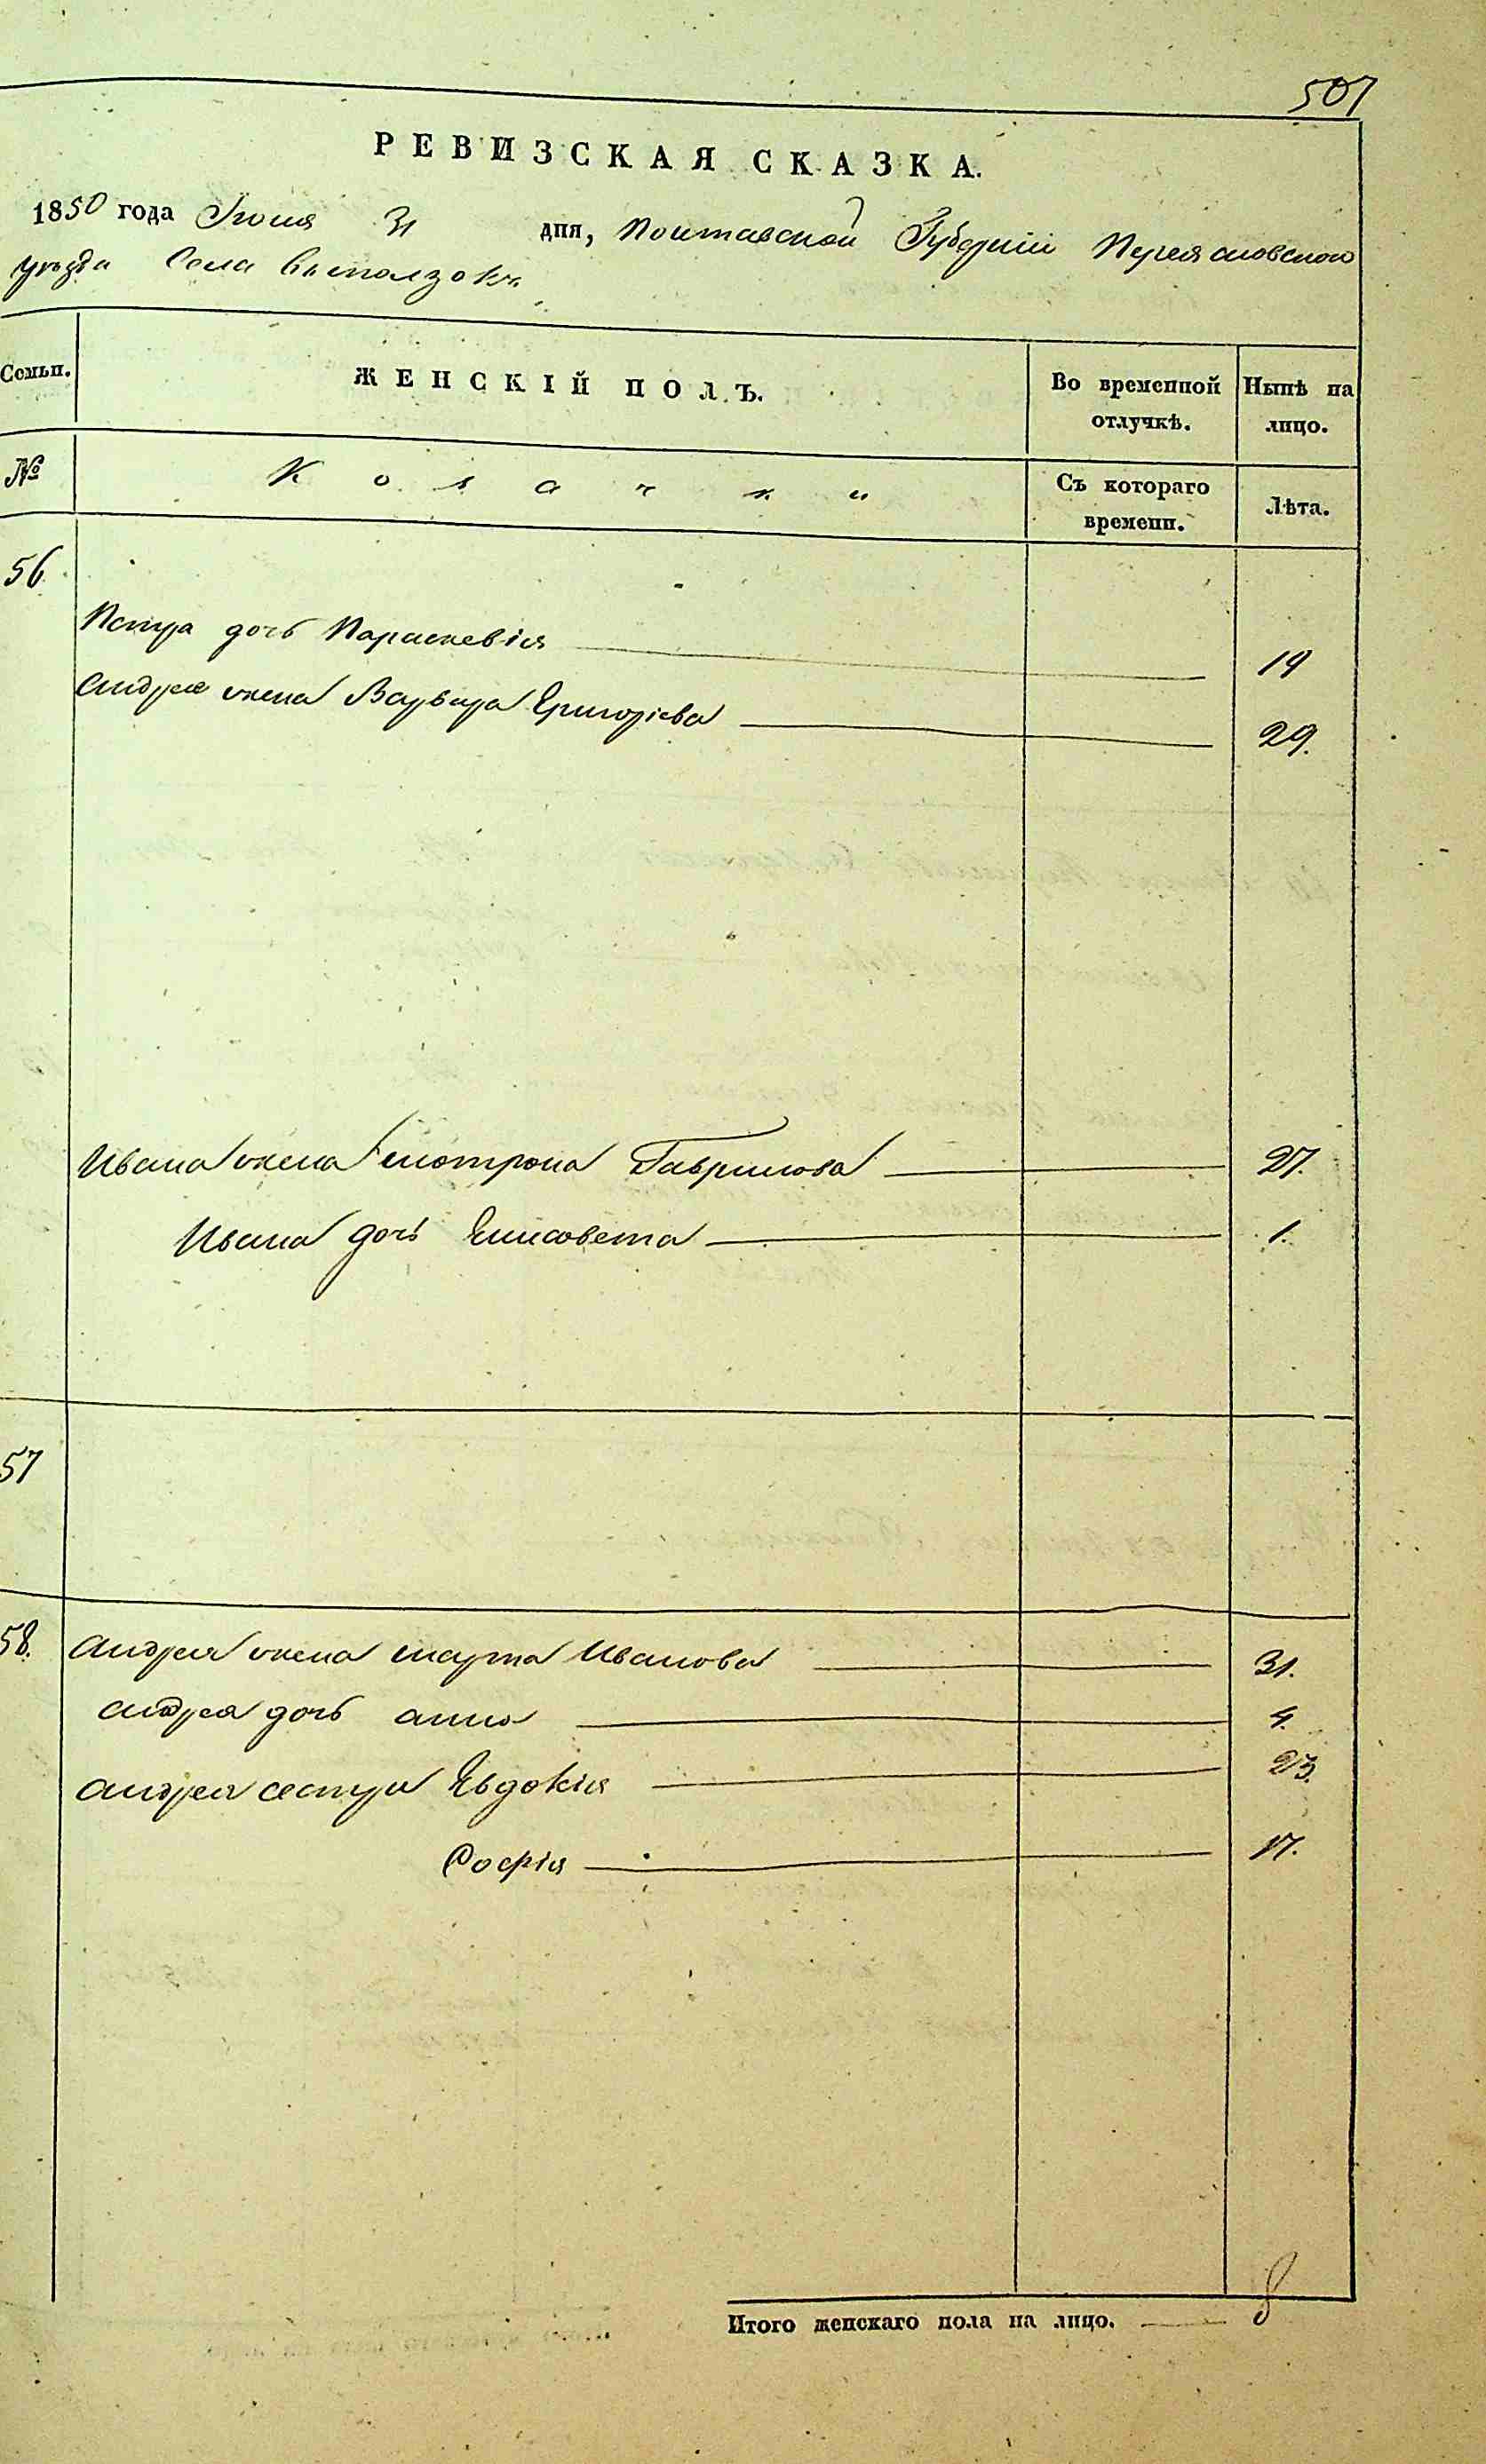 507
РЕВИЗСКАЯ СКАЗКА.
1850 года Июля 31 дня, Полтавской Губерніи Переясловского
уезда Села Выползокъ
Семьи. ЖЕНСКІЙ ПОЛЪ. Во временной отлучкѣ. Нынѣ на лицо.
№ Козачки Съ котораго времени. Лѣта.
56.
Петра дочь Параскевія 19
Андрея жена Варвара Григоріева 29.
Ивана жена Мотрона Гаврилова 27.
Ивана дочь Елисовета 1.
57
58. Андрея жена Марта Иванова 31.
Андрея дочь Анна 4.
Андрея сестры Евдокія 23.
Софія 17.
Итого женскаго пола на лицо. 8